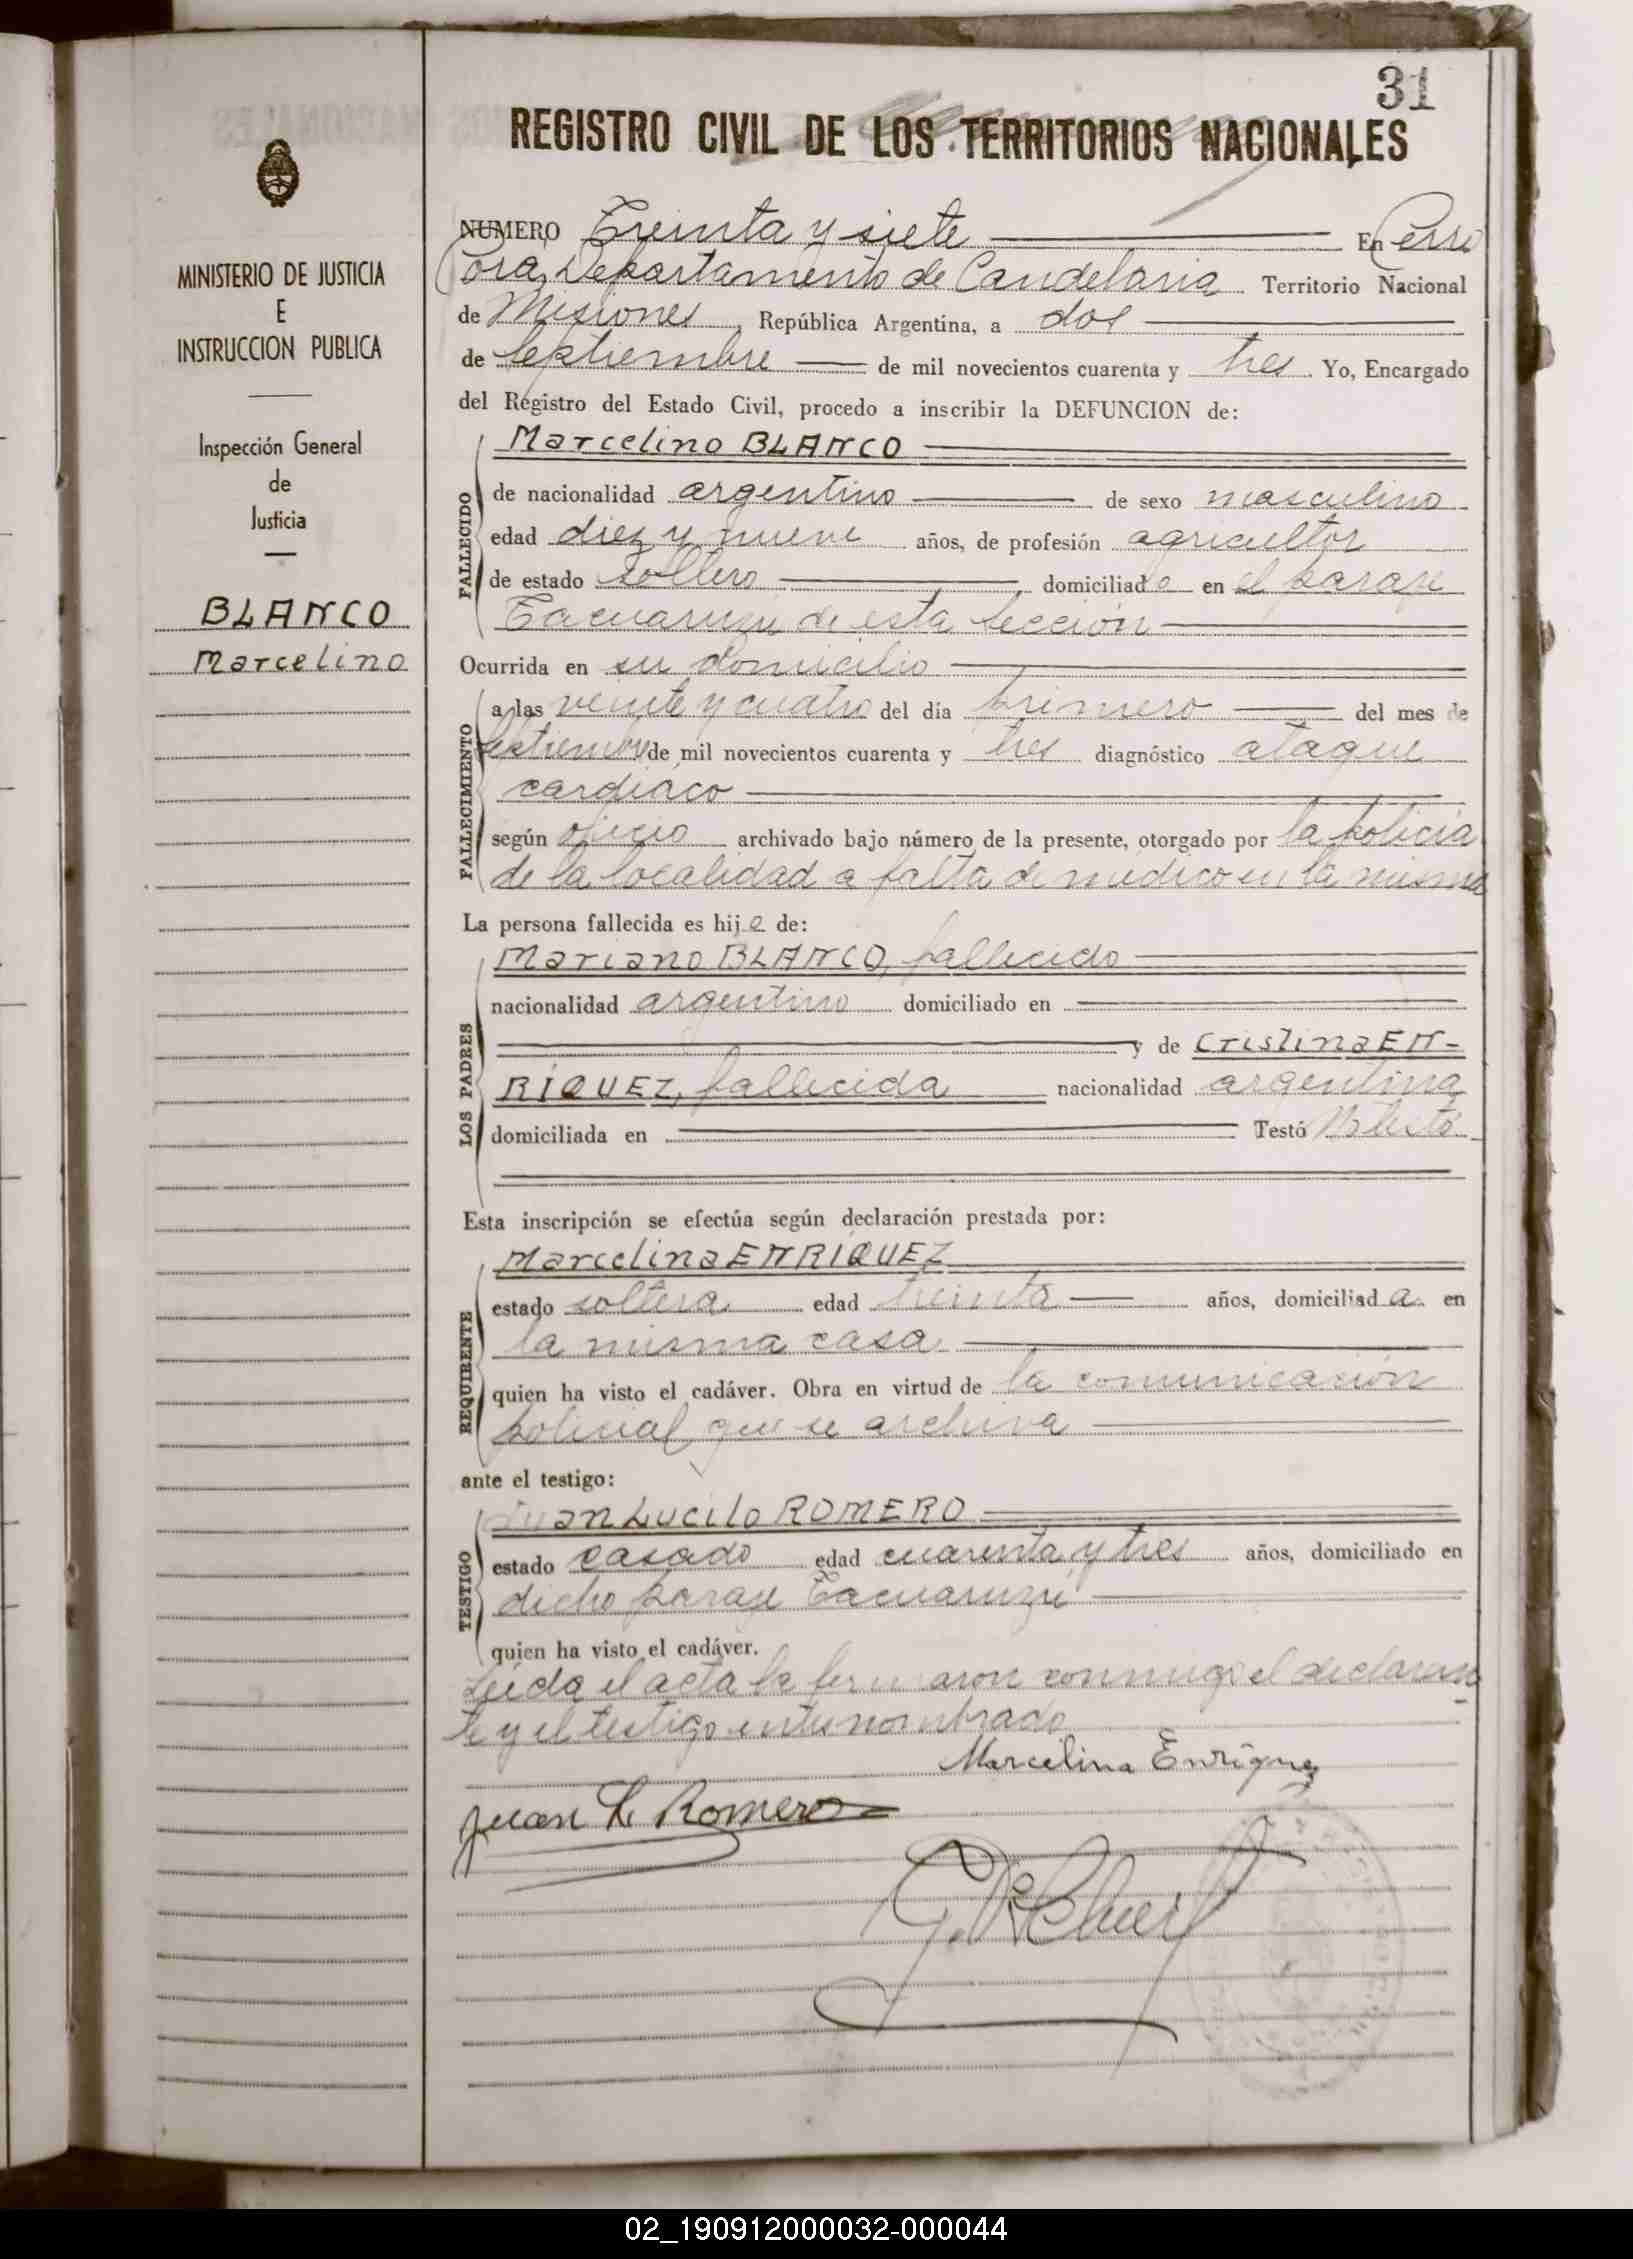 31
REGISTRO CIVIL DE LOS TERRITORIOS NACIONALES
MINISTERIO DE JUSTICIA
E
INSTRUCCION PUBLICA
Inspección General
de
Justicia
BLANCO
Marcelino
NUMERO Treinta y siete En Cerro
Corá, Departamento de Candelaria Territorio Nacional
de Misiones, República Argentina, a dos
de septiembre de mil novecientos cuarenta y tres. Yo, Encargado
del Registro del Estado Civil, procedo a inscribir la DEFUNCION de:
FALLECIDO
Marcelino BLANCO
de nacionalidad argentino de sexo masculino
edad diez y nueve años, de profesión agricultor
de estado soltero domiciliado en el paraje
Tacuaruzú de esta sección
Ocurrida en su domicilio
FALLECIMIENTO
a las veinte y cuatro del día primero del mes de
septiembre de mil novecientos cuarenta y tres diagnóstico ataque
cardíaco
según oficio archivado bajo número de la presente, otorgado por la policía
de la localidad a falta de médico en la misma
La persona fallecida es hijo de:
LOS PADRES
Mariano BLANCO, fallecido
nacionalidad argentino domiciliado en
y de Cristina EN-
RIQUEZ, fallecida nacionalidad argentina
domiciliada en Testó No testó
Esta inscripción se efectúa según declaración prestada por:
REQUIRENTE
Marcelina ENRIQUEZ
estado soltera edad treinta años, domiciliada en
la misma casa
quien ha visto el cadáver. Obra en virtud de la comunicación
policial que se archiva
ante el testigo:
TESTIGO
Juan Lucilo ROMERO
estado casado edad cuarenta y tres años, domiciliado en
dicho paraje Tacuaruzú
quien ha visto el cadáver.
Leída el acta la firmaron conmigo el declaran-
te y el testigo antes nombrado
Marcelina Enriquez
Juan L. Romero
02_190912000032-000044